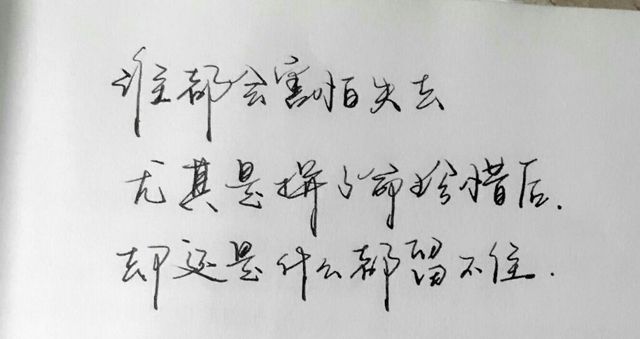 谁都会害怕失去
尤其是拼了命珍惜后.
却还是什么都留不住.